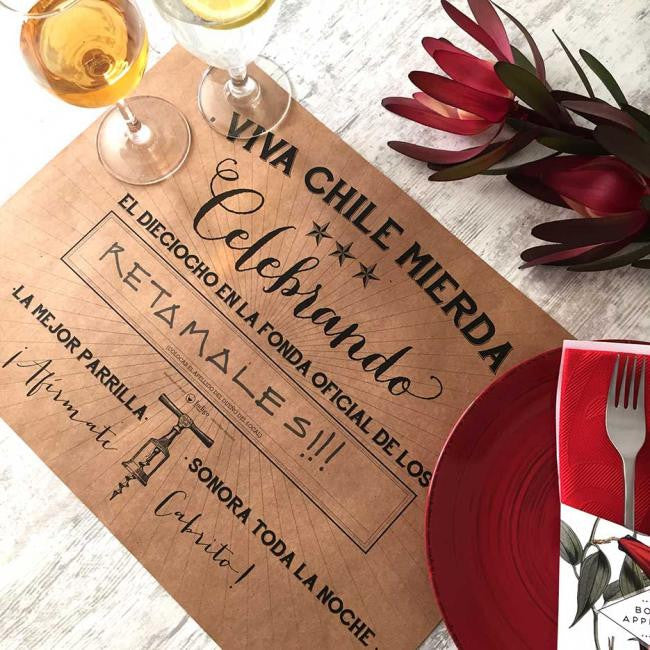 . VIVA CHILE MIERDA
Celebrando
EL DIECIOCHO EN LA FONDA OFICIAL DE LOS
RETAMALES!!!
(COLOCAR EL APELLIDO DEL DUEÑO DEL LOCAL)
.LA MEJOR PARRILLA.
¡Afírmate
Cabrito!
. SONORA TODA LA NOCHE .
BO
APPE